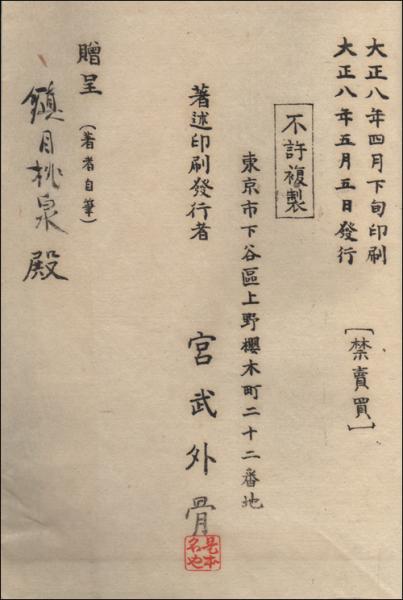 大正八年四月下旬印刷
大正八年五月五日發行
[禁賣買]
不許複製
東京市下谷區上野櫻木町二十二番地
著述印刷發行者
宮武外骨
是本名也
贈呈
(著者自筆)
鎮目桃泉殿